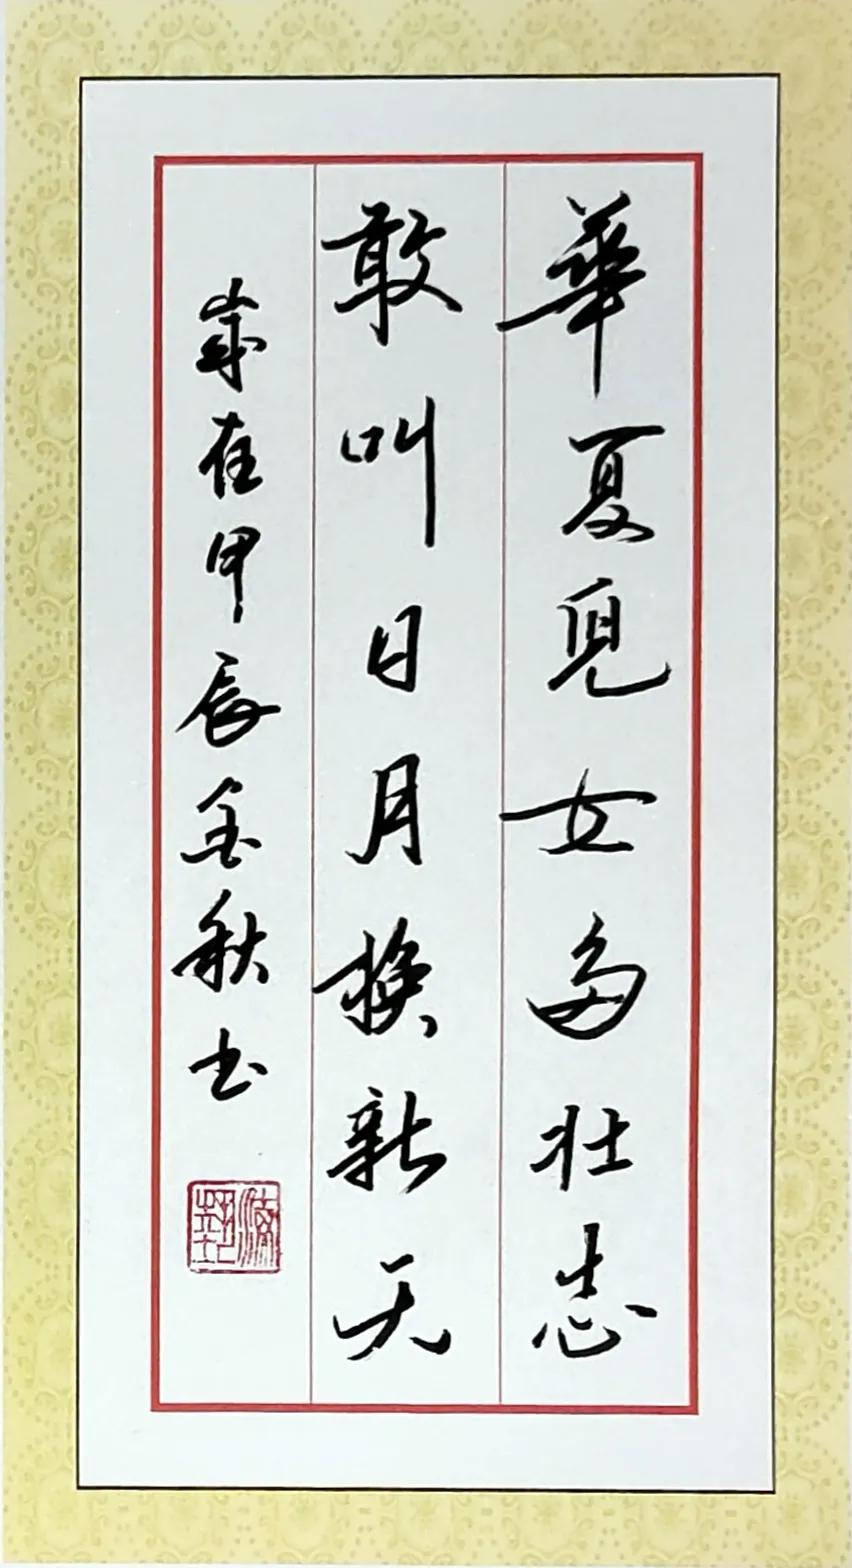 華夏兒女多壯志
敢叫日月換新天
歲在甲辰金秋書